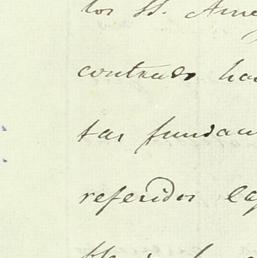 los SS. Ame
contrado ha
tas fundam
referidos eq